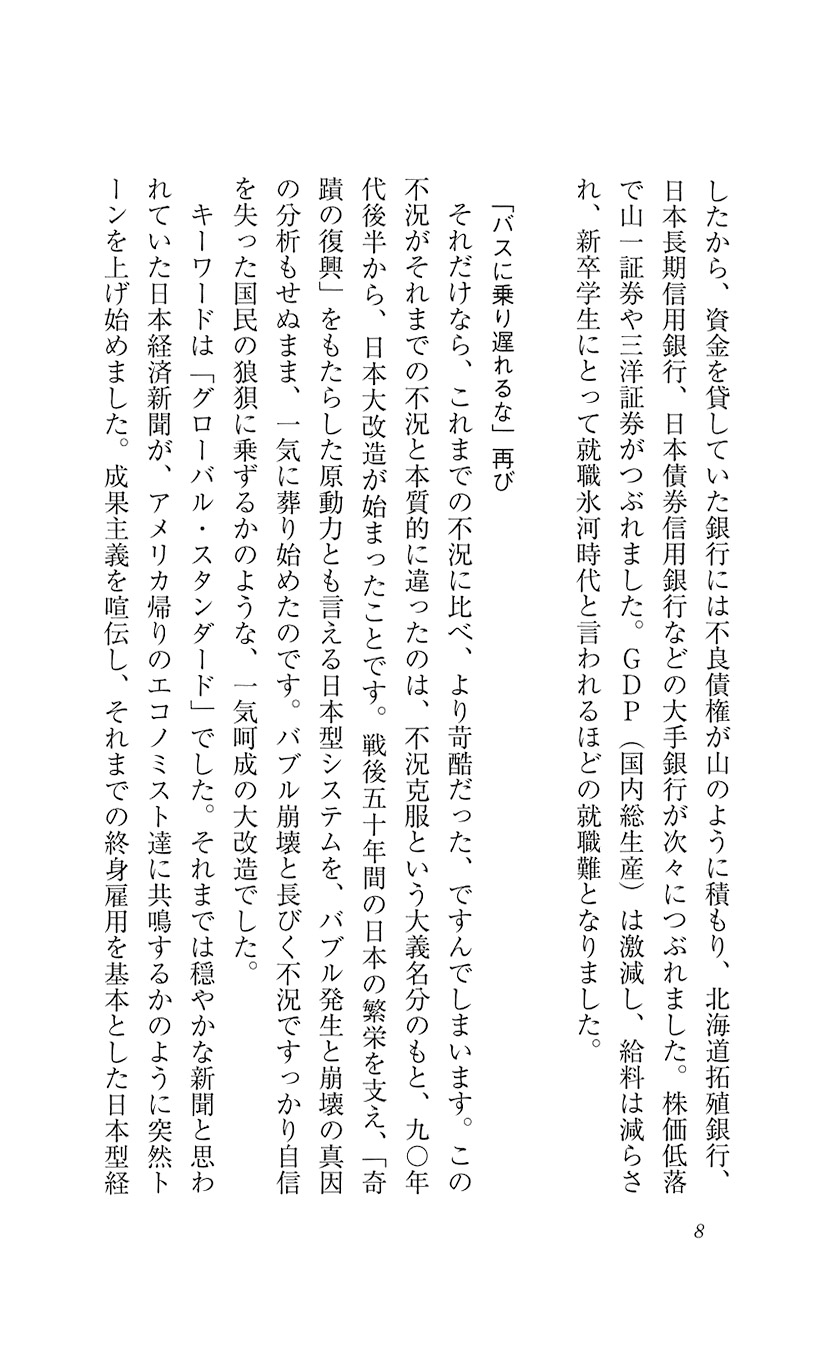 したから、資金を貸していた銀行には不良債権が山のように積もり、北海道拓殖銀行、
日本長期信用銀行、日本債券信用銀行などの大手銀行が次々につぶれました。株価低落
で山一証券や三洋証券がつぶれました。ＧＤＰ（国内総生産）は激減し、給料は減らさ
れ、新卒学生にとって就職氷河時代と言われるほどの就職難となりました。
「バスに乗り遅れるな」再び
それだけなら、これまでの不況に比べ、より苛酷だった、ですんでしまいます。この
不況がそれまでの不況と本質的に違ったのは、不況克服という大義名分のもと、九〇年
代後半から、日本大改造が始まったことです。戦後五十年間の日本の繁栄を支え、「奇
蹟の復興」をもたらした原動力とも言える日本型システムを、バブル発生と崩壊の真因
の分析もせぬまま、一気に葬り始めたのです。バブル崩壊と長びく不況ですっかり自信
を失った国民の狼狽に乗ずるかのような、一気呵成の大改造でした。
キーワードは「グローバル・スタンダード」でした。それまでは穏やかな新聞と思わ
れていた日本経済新聞が、アメリカ帰りのエコノミスト達に共鳴するかのように突然ト
ーンを上げ始めました。成果主義を喧伝し、それまでの終身雇用を基本とした日本型経
8